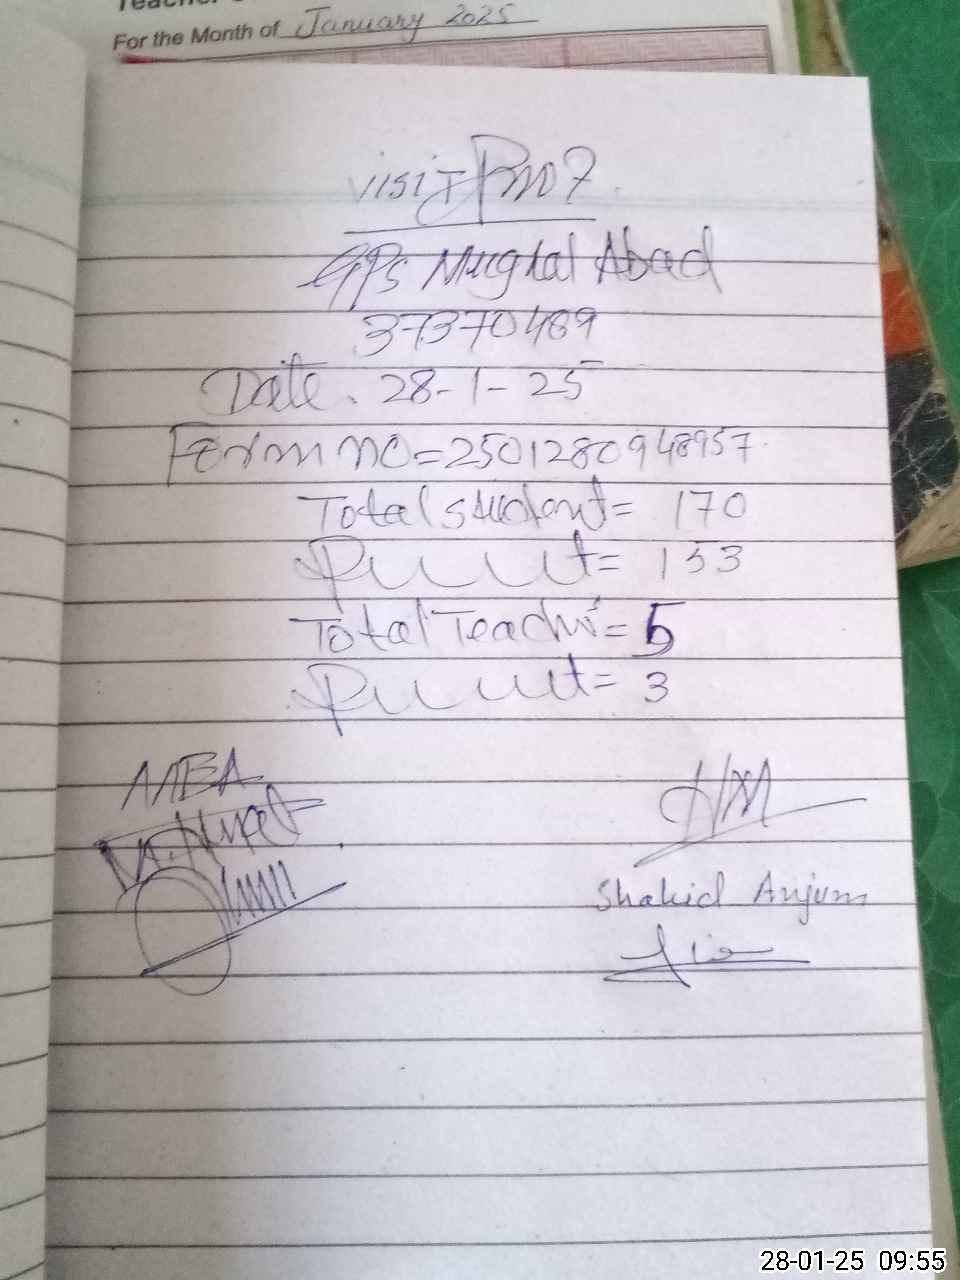 For the Month of January 2025
visit
GPS Mughal Abad
37370489
Date. 28-1-25
Form no=2501280948957
Total student= 170
= 153
Total Teacher=5
= 3
MEA
HM
Shahid Anjum
28-01-25 09:55